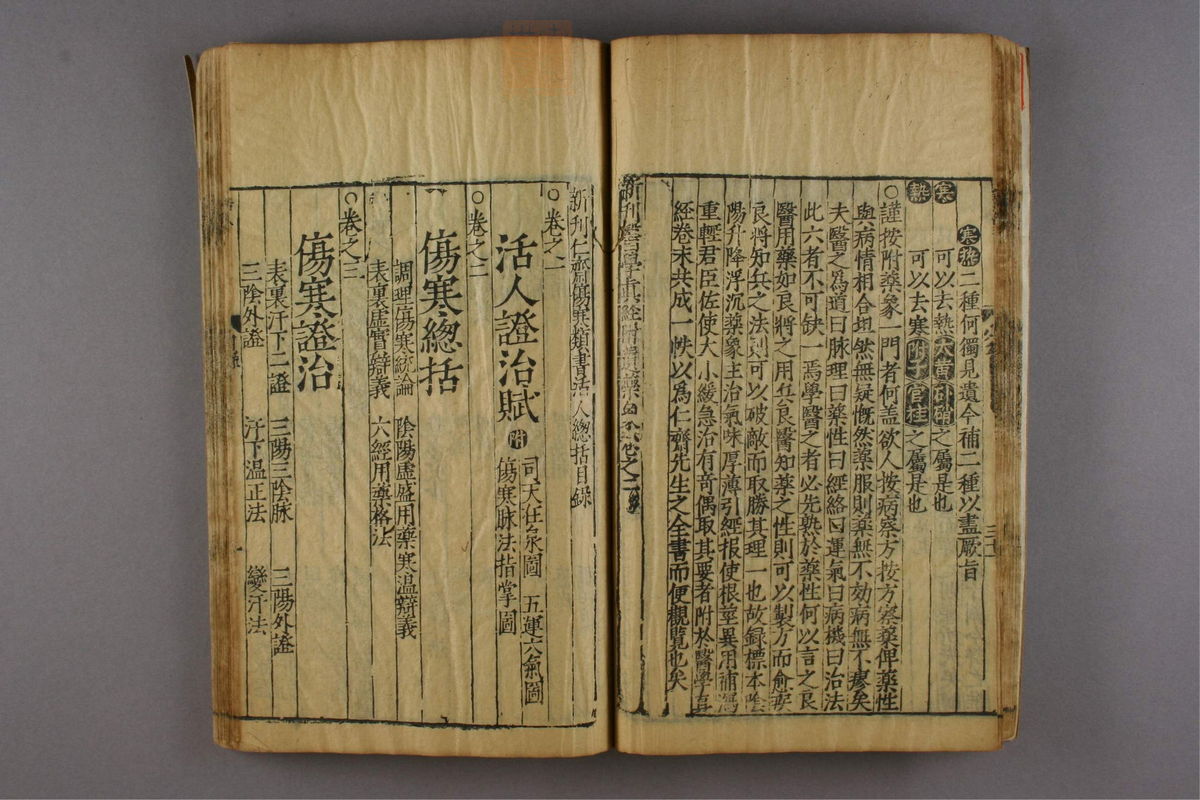 寒 寒性 二種何獨見遺今補二種以盡厥旨
可以去熱大黃朴硝之屬是也
熱 可以去寒附子官桂之屬是也
○謹按附藥象一門者何盖欲人按病察方按方察藥俾藥性
與病情相合坦然無疑慨然藥服則藥無不効病無不瘳矣
夫醫之爲道曰脉理曰藥性曰經絡曰運氣曰病機曰治法
此六者不可缺一焉學醫之者必先熟於藥性何以言之良
醫用藥如良將之用兵良醫知藥之性則可以製方而愈疾
良將知兵之法則可以破敵而取勝其理一也故録標本陰
陽升降浮沉藥象主治氣味厚薄引經报使根莖異用補瀉
重輕君臣佐使大小緩急治有竒偶取其要者附於醫學真
經卷末共成一帙以爲仁齋先生之全書而便觀覧也矣
新刋醫學真經附遺藥象卷之二
新刋仁齋傷寒類書活人總括目錄
○卷之一
活人證治賦 附 司天在泉圖 五運六氣圖
傷寒脉法指掌圖
○卷之二
傷寒總括
調理傷寒統論 陰陽虛盛用藥寒温辯義
表裏虛實辯義 六經用藥格法
○卷之三
傷寒證治
表裏汗下二證 三陽三陰脉 三陽外證
三陰外證 汗下温正法 變汗法